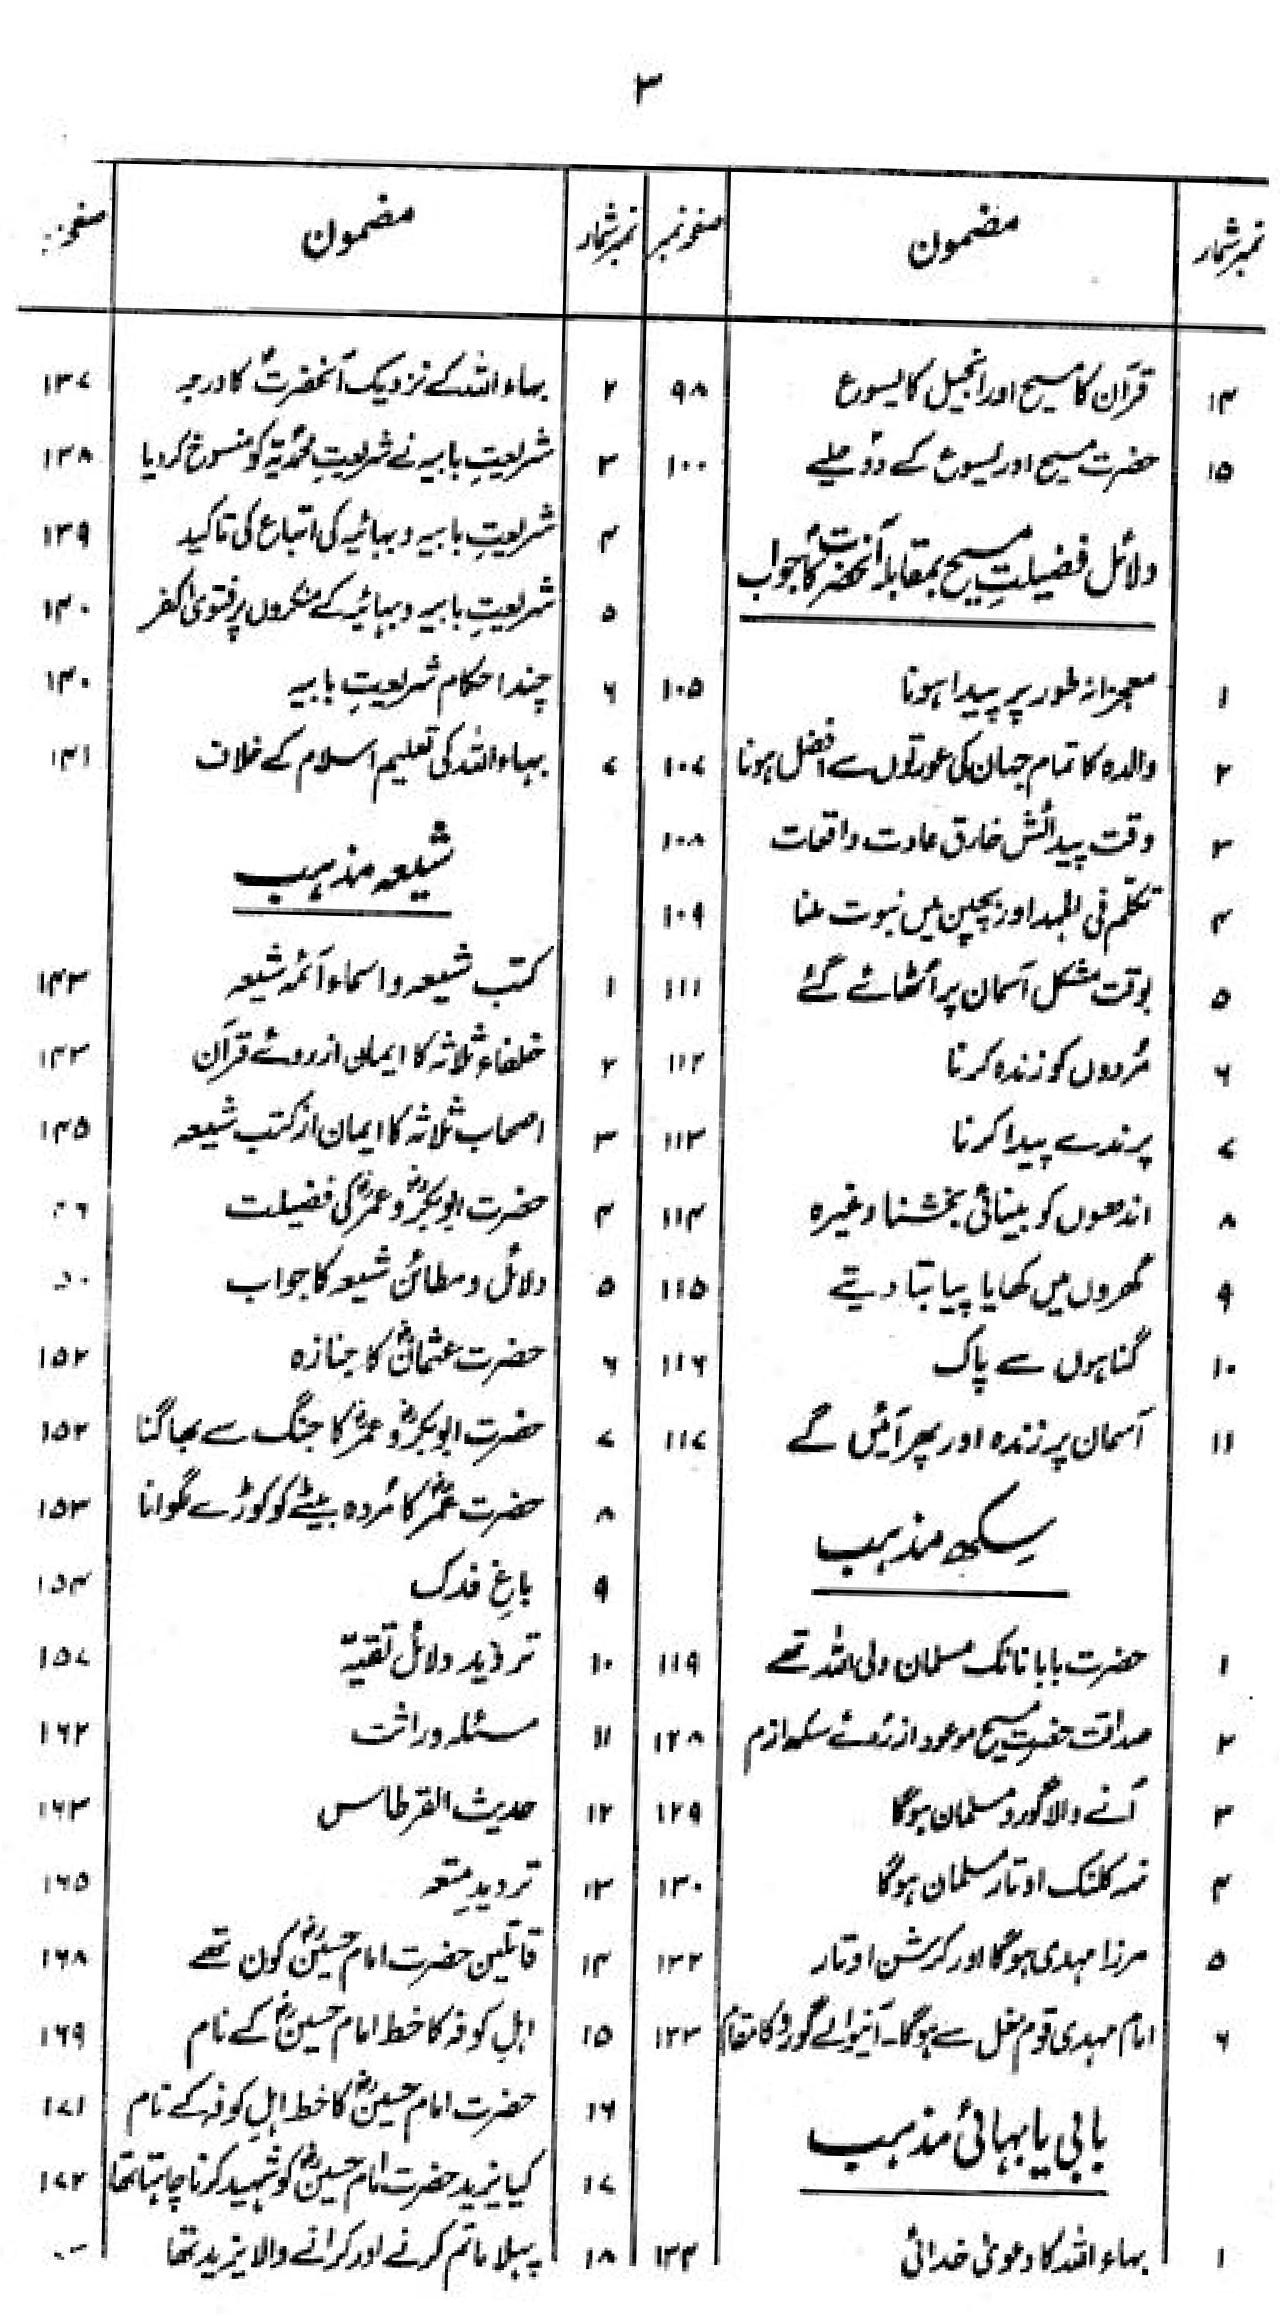 ۳
نمبر شمار مضمون صفحہ نمبر
۱۴ قرآن کا مسیح اور انجیل کا یسوع ۹۸
۱۵ حضرت مسیح اور یسوع کے دو حلیے ۱۰۰
دلائل فضیلتِ مسیح بمقابلہ آنحضرتؐ کا جواب
۱ معجزانہ طور پر پیدا ہونا ۱۰۵
۲ والدہ کا تمام جہان کی عورتوں سے افضل ہونا ۱۰۷
۳ وقت پیدائش خارق عادت واقعات ۱۰۸
۴ تکلّم فی المہد اور بچپن میں نبوت ملنا ۱۰۹
۵ بوقت مشکل آسمان پر اُٹھائے گئے ۱۱۱
۶ مُردوں کو زندہ کرنا ۱۱۲
۷ پرندے پیدا کرنا ۱۱۳
۸ اندھوں کو بینائی بخشنا وغیرہ ۱۱۴
۹ گھروں میں کھایا پیا بتا دیتے ۱۱۵
۱۰ گناہوں سے پاک ۱۱۶
۱۱ آسمان پر زندہ اور پھر آئیں گے ۱۱۷
سِکھ مذہب
۱ حضرت بابا نانک مسلمان ولی اللہ تھے ۱۱۹
۲ صداقت حضرت مسیح موعود از رُوئے سکھ ازم ۱۲۸
۳ آنے والا گورو مسلمان ہوگا ۱۲۹
۴ نہہ کلنک اوتار مسلمان ہوگا ۱۳۰
۵ مرزا مہدی ہوگا اور کرشن اوتار ۱۳۲
۶ امام مہدی قوم مغل سے ہوگا۔ آنیوالے گورو کا مقام ۱۳۳
بابی یا بہائی مذہب
۱ بہاء اللہ کا دعویٰ خدائی ۱۳۴
نمبر شمار مضمون
۲ بہاء اللہ کے نزدیک آنحضرتؐ کا درجہ ۱۳۷
۳ شریعتِ بابیہ نے شریعتِ محمدؐیہ کو منسوخ کر دیا ۱۳۸
۴ شریعتِ بابیہ و بہائیہ کی اتباع کی تاکید ۱۳۹
۵ شریعتِ بابیہ و بہائیہ کے منکروں پر فتویٰ کفر ۱۴۰
۶ چند احکام شریعتِ بابیہ ۱۴۰
۷ بہاء اللہ کی تعلیم اسلام کے خلاف ۱۴۱
شیعہ مذہب
۱ کتب شیعہ و اسماء آئمہ شیعہ ۱۴۳
۲ خلفاء ثلاثہ کا ایمان ازروئے قرآن ۱۴۳
۳ اصحاب ثلاثہ کا ایمان از کتب شیعہ ۱۴۵
۴ حضرت ابوبکرؓ و عمرؓ کی فضیلت
۵ دلائل و مطائن شیعہ کا جواب
۶ حضرت عثمانؓ کا جنازہ ۱۵۲
۷ حضرت ابوبکرؓ و عمرؓ کا جنگ سے بھاگنا ۱۵۲
۸ حضرت عمرؓ کا مُردہ بیٹے کو کوڑے لگوانا ۱۵۳
۹ باغِ فدک ۱۵۴
۱۰ تردید دلائل تقیّہ ۱۵۷
۱۱ مسئلہ وراثت ۱۶۲
۱۲ حدیث القرطاس ۱۶۳
۱۳ تردیدِ متعہ ۱۶۵
۱۴ قاتلین حضرت امام حسینؓ کون تھے ۱۶۸
۱۵ اہلِ کوفہ کا خط امام حسینؓ کے نام ۱۶۹
۱۶ حضرت امام حسینؓ کا خط اہلِ کوفہ کے نام ۱۷۱
۱۷ کیا یزید حضرت امام حسینؓ کو شہید کرنا چاہتا تھا ۱۷۲
۱۸ پہلا ماتم کرنے اور کرانے والا یزید تھا